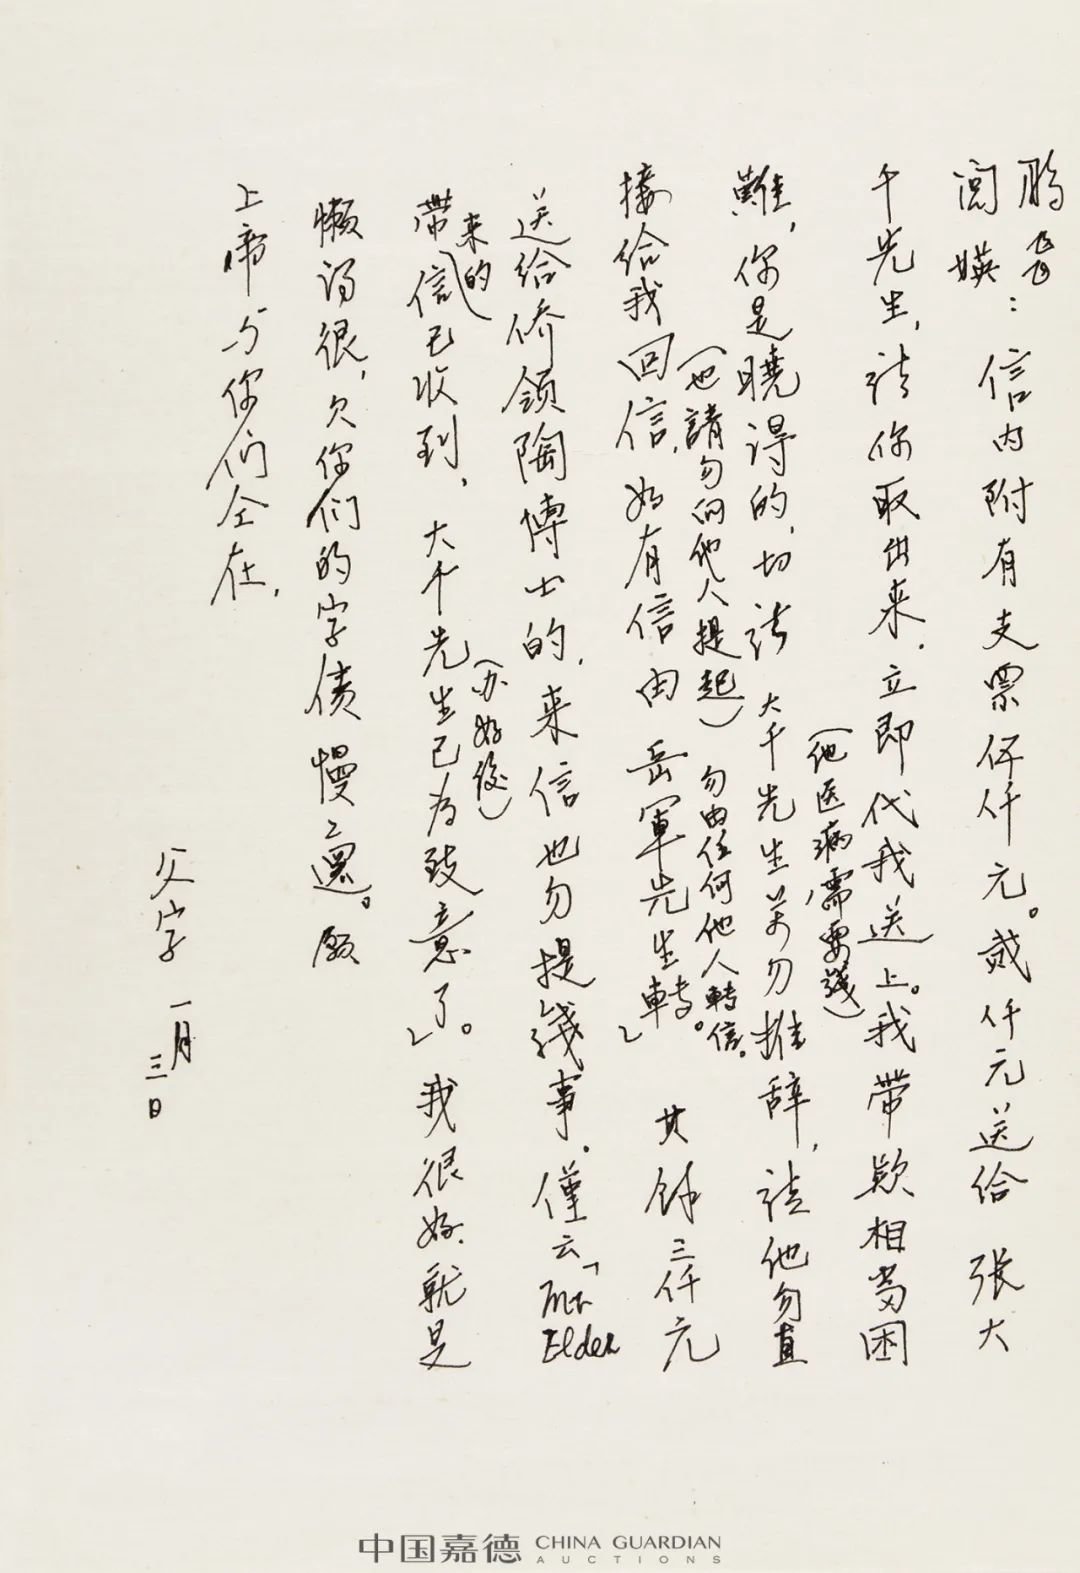 鵬飛
閭媖：信内附有支票伍仟元。贰仟元送给 张大
千先生，请你取出来，立即代我送上。我带欵相当困
（他医病需要錢）
難，你是曉得的，切请 大千先生萬勿推辞，请他勿直
（也請勿向他人提起）勿由任何他人轉信。
接给我回信，如有信由 岳軍先生轉。 其餘三仟元
送给侨领陶博士的，来信也勿提錢事。僅云「Mr Elder
带来的信已收到，大千先生已为致意了」。我很好，就是
（办好後）
懒得很，欠你们的字债慢慢還。願
上帝与你们仝在，
父字 一月三日
中国嘉德 CHINA GUARDIAN
AUCTIONS